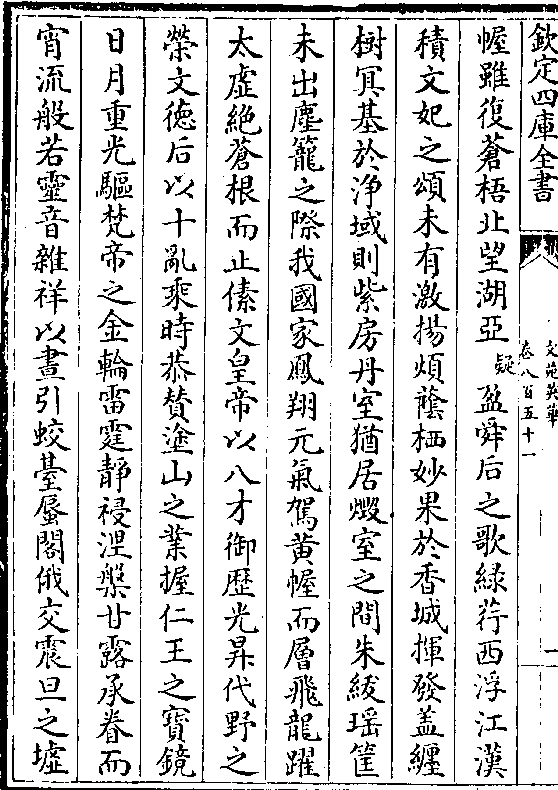 欽定四庫全書
文苑英華
卷八百五十一
一
幄雖復蒼梧北望湖亞疑盈舜后之歌緑荇西浮江漢
積文妃之頌未有激揚煩蔭栖妙果於香城揮發盖纒
樹冥基於浄域則紫房丹室猶居燬室之間朱紱瑶筐
未出塵籠之際我國家鳳翔元氣駕黄幄而層飛龍躍
太虚絶蒼根而止傃文皇帝以八才御歴光昇代野之
榮文徳后以十亂乘時恭賛塗山之業握仁王之寳鏡
日月重光驅梵帝之金輪雷霆静祲涅槃甘露承眷而
宵流般若靈音雜祥以晝引蛟臺蜃閣俄交震旦之墟